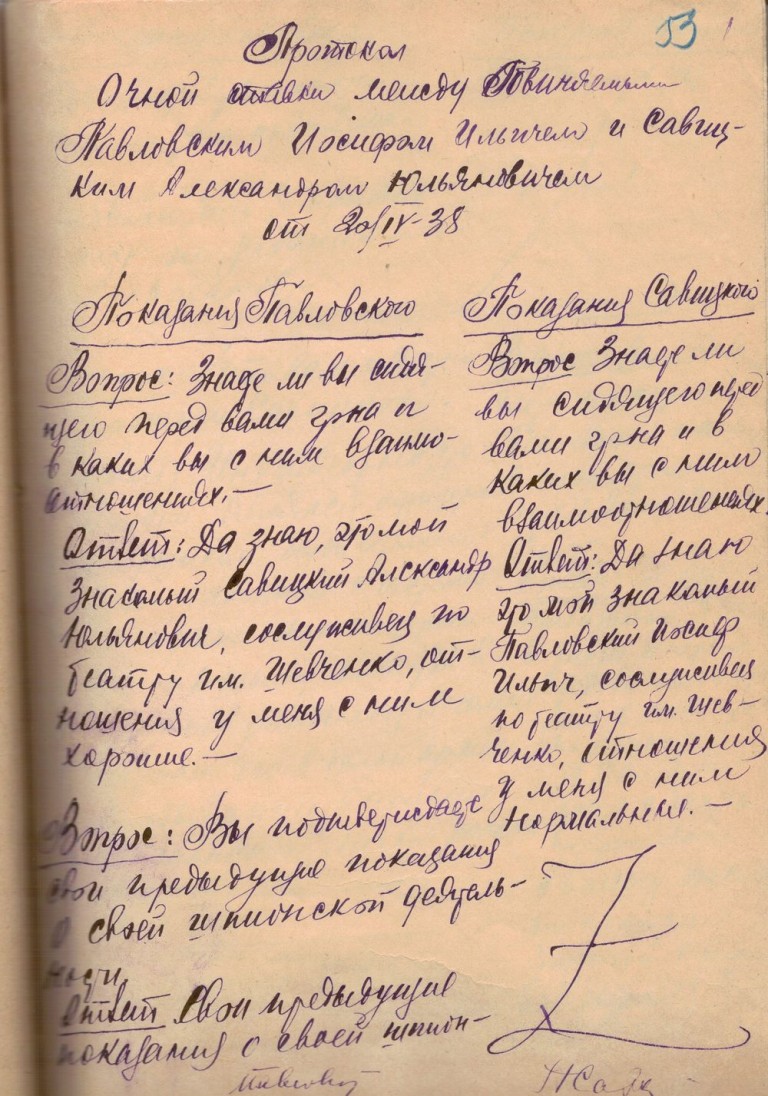 53
Протокол
Очной ставки между Обвиняемыми
Павловским Иосифом Ильичем и Савиц-
ким Александром Юльяновичем
от 20/IV-38
Показания Павловского
Вопрос: Знаете ли вы сидя-
щего перед вами гр-на и
в каких вы с ним взаимо-
отношениях.—
Ответ: Да знаю, это мой
знакомый Савицкий Александр
Юльянович, сослуживец по
театру им. Шевченко, от-
ношения у меня с ним
хорошие.—
Вопрос: Вы подтверждаете
свои предыдущие показания
о своей шпионской деятель-
ности
Ответ Свои предыдущие
показания о своей шпион-
Показания Савицкого
Вопрос Знаете ли
вы сидящего перед
вами гр-на и в
каких вы с ним
взаимоотношениях.
Ответ: Да знаю
это мой знакомый
Павловский Иосиф
Ильич, сослуживец
по театру им. Шев-
ченко, отношения
у меня с ним
нормальные.—